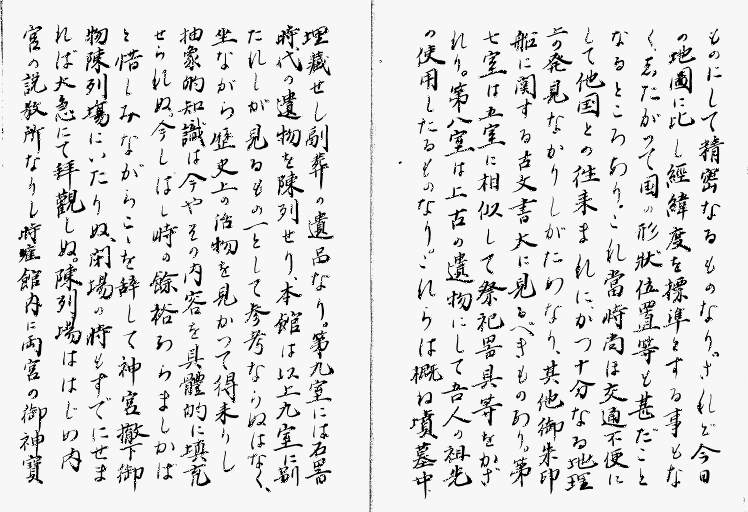 ものにして精密なるものなり。されど今日
の地圖に比し經緯度を標準とする事もな
く、したがつて国の形狀位置等も甚だこと
なるところあり。これ當時尚ほ交通不便に
して他国との徃来まれにかつ十分なる地理
上の発見なかりしがためなり、其他御朱印
船に関する古文書大に見るべきものあり。第
七室は五室に相似して祭祀器具等をかざ
れり。第八室は上古の遺物にして吾人の祖先
の使用したるものなり。これらは概ね墳墓中
埋藏せし副葬の遺品なり。第九室には石器
時代の遺物を陳列せり、本館は以上九室に別
たれしが見るもの一として参考ならぬはなく、
坐ながら歴史上の活物を見かつて得来りし
抽象的知識は今やその内容を具體的に填充
せられぬ。今しばし時の餘裕あらましかば
と惜しみながらこゝを辞して神宮撤下御
物陳列塲にいたりぬ、閉場の時もすでにせま
れば大急にて拜觀しぬ。陳列場ははじめ内
宮の説教所なりし時雍館内に両宮の御神寶